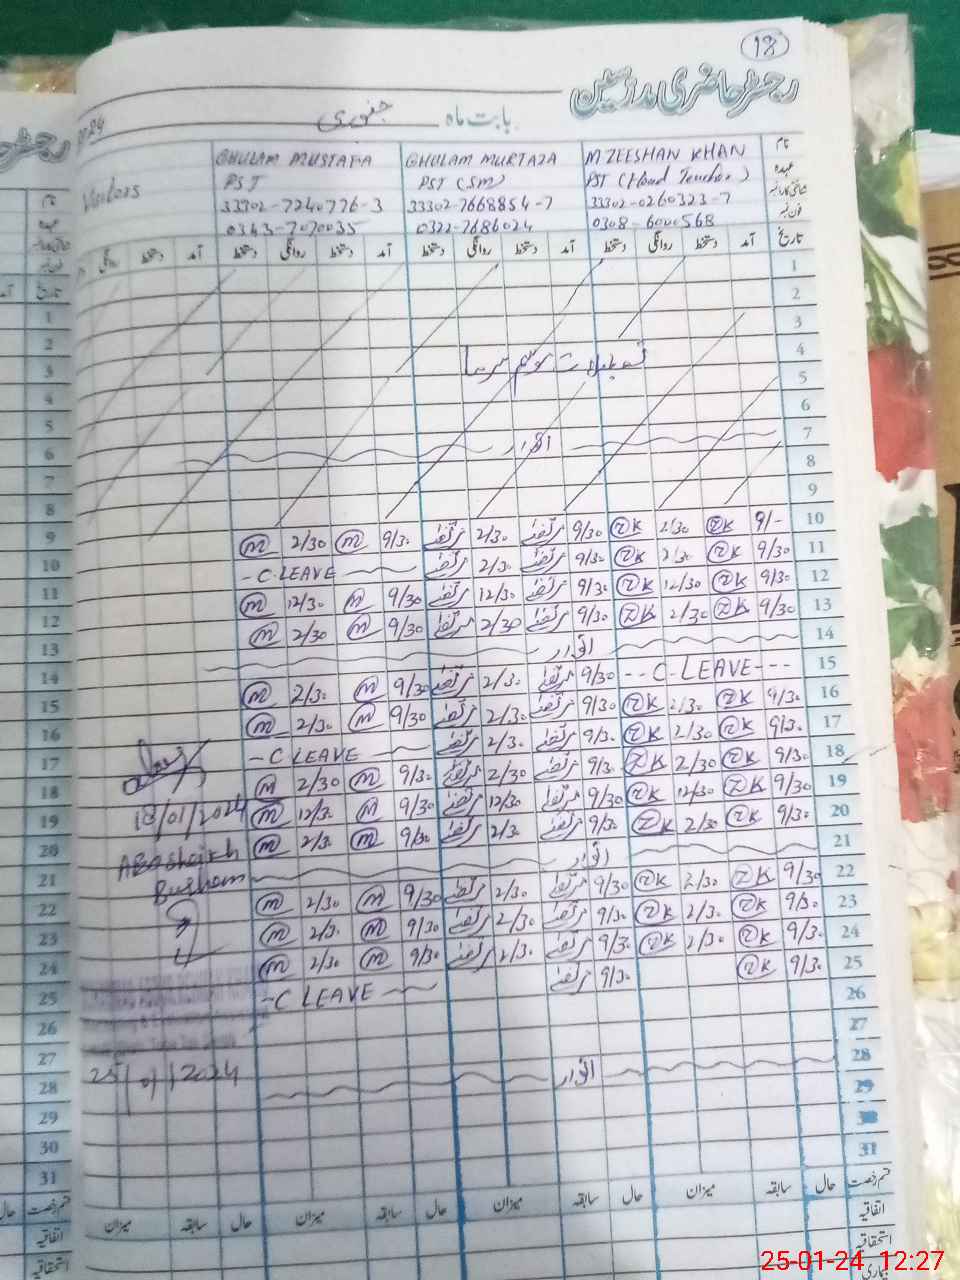 18
رجسٹر حاضری مدرسین
بابت ماہ جنوری
2024
نام
GHULAM MUSTAFA GHULAM MURTAZA M ZEESHAN KHAN
عہدہ
Visitors PST PST (SM) PST (Head Teacher)
33302-7240776-3 33302-7668854-7 33302-0260323-7
0343-7070035 0322-7686024 0308-6000568
روانگی دستخط آمد دستخط روانگی دستخط آمد دستخط روانگی دستخط آمد دستخط روانگی دستخط آمد تاریخ
1
2
3
تعطیلات موسم سرما 4
5
6
اتوار 7
8
9
M 2/30 M 9/30 مرتضیٰ 2/30 مرتضیٰ 9/30 ZK 2/30 ZK 9/- 10
-C.LEAVE مرتضیٰ 2/30 مرتضیٰ 9/30 ZK 2/30 ZK 9/30 11
M 12/30 M 9/30 مرتضیٰ 12/30 مرتضیٰ 9/30 ZK 12/30 ZK 9/30 12
M 2/30 M 9/30 مرتضیٰ 2/30 مرتضیٰ 9/30 ZK 2/30 ZK 9/30 13
اتوار 14
M 2/30 M 9/30 مرتضیٰ 2/30 مرتضیٰ 9/30 --C LEAVE--- 15
M 2/30 M 9/30 مرتضیٰ 2/30 مرتضیٰ 9/30 ZK 2/30 ZK 9/30 16
-C LEAVE مرتضیٰ 2/30 مرتضیٰ 9/30 ZK 2/30 ZK 9/30 17
M 2/30 M 9/30 مرتضیٰ 2/30 مرتضیٰ 9/30 ZK 2/30 ZK 9/30 18
18/01/2024 M 12/30 M 9/30 مرتضیٰ 12/30 مرتضیٰ 9/30 ZK 12/30 ZK 9/30 19
M 2/30 M 9/30 مرتضیٰ 2/30 مرتضیٰ 9/30 ZK 2/30 ZK 9/30 20
اتوار 21
M 2/30 M 9/30 مرتضیٰ 2/30 مرتضیٰ 9/30 ZK 2/30 ZK 9/30 22
M 2/30 M 9/30 مرتضیٰ 2/30 مرتضیٰ 9/30 ZK 2/30 ZK 9/30 23
M 2/30 M 9/30 مرتضیٰ 2/30 مرتضیٰ 9/30 ZK 2/30 ZK 9/30 24
-C LEAVE مرتضیٰ 9/30 ZK 9/30 25
26
27
25/01/2024 اتوار 28
29
30
31
میزان سابقہ حال میزان سابقہ حال میزان سابقہ حال میزان سابقہ حال قسم رخصت
اتفاقیہ
استحقاقیہ
بیماری
رجسٹر حا
نام
عہدہ
تاریخ
1
2
3
4
5
6
7
8
9
10
11
12
13
14
15
16
17
18
19
20
21
22
23
24
25
26
27
28
29
30
31
حال قسم رخصت
اتفاقیہ
استحقاقیہ
25-01-24 12:27